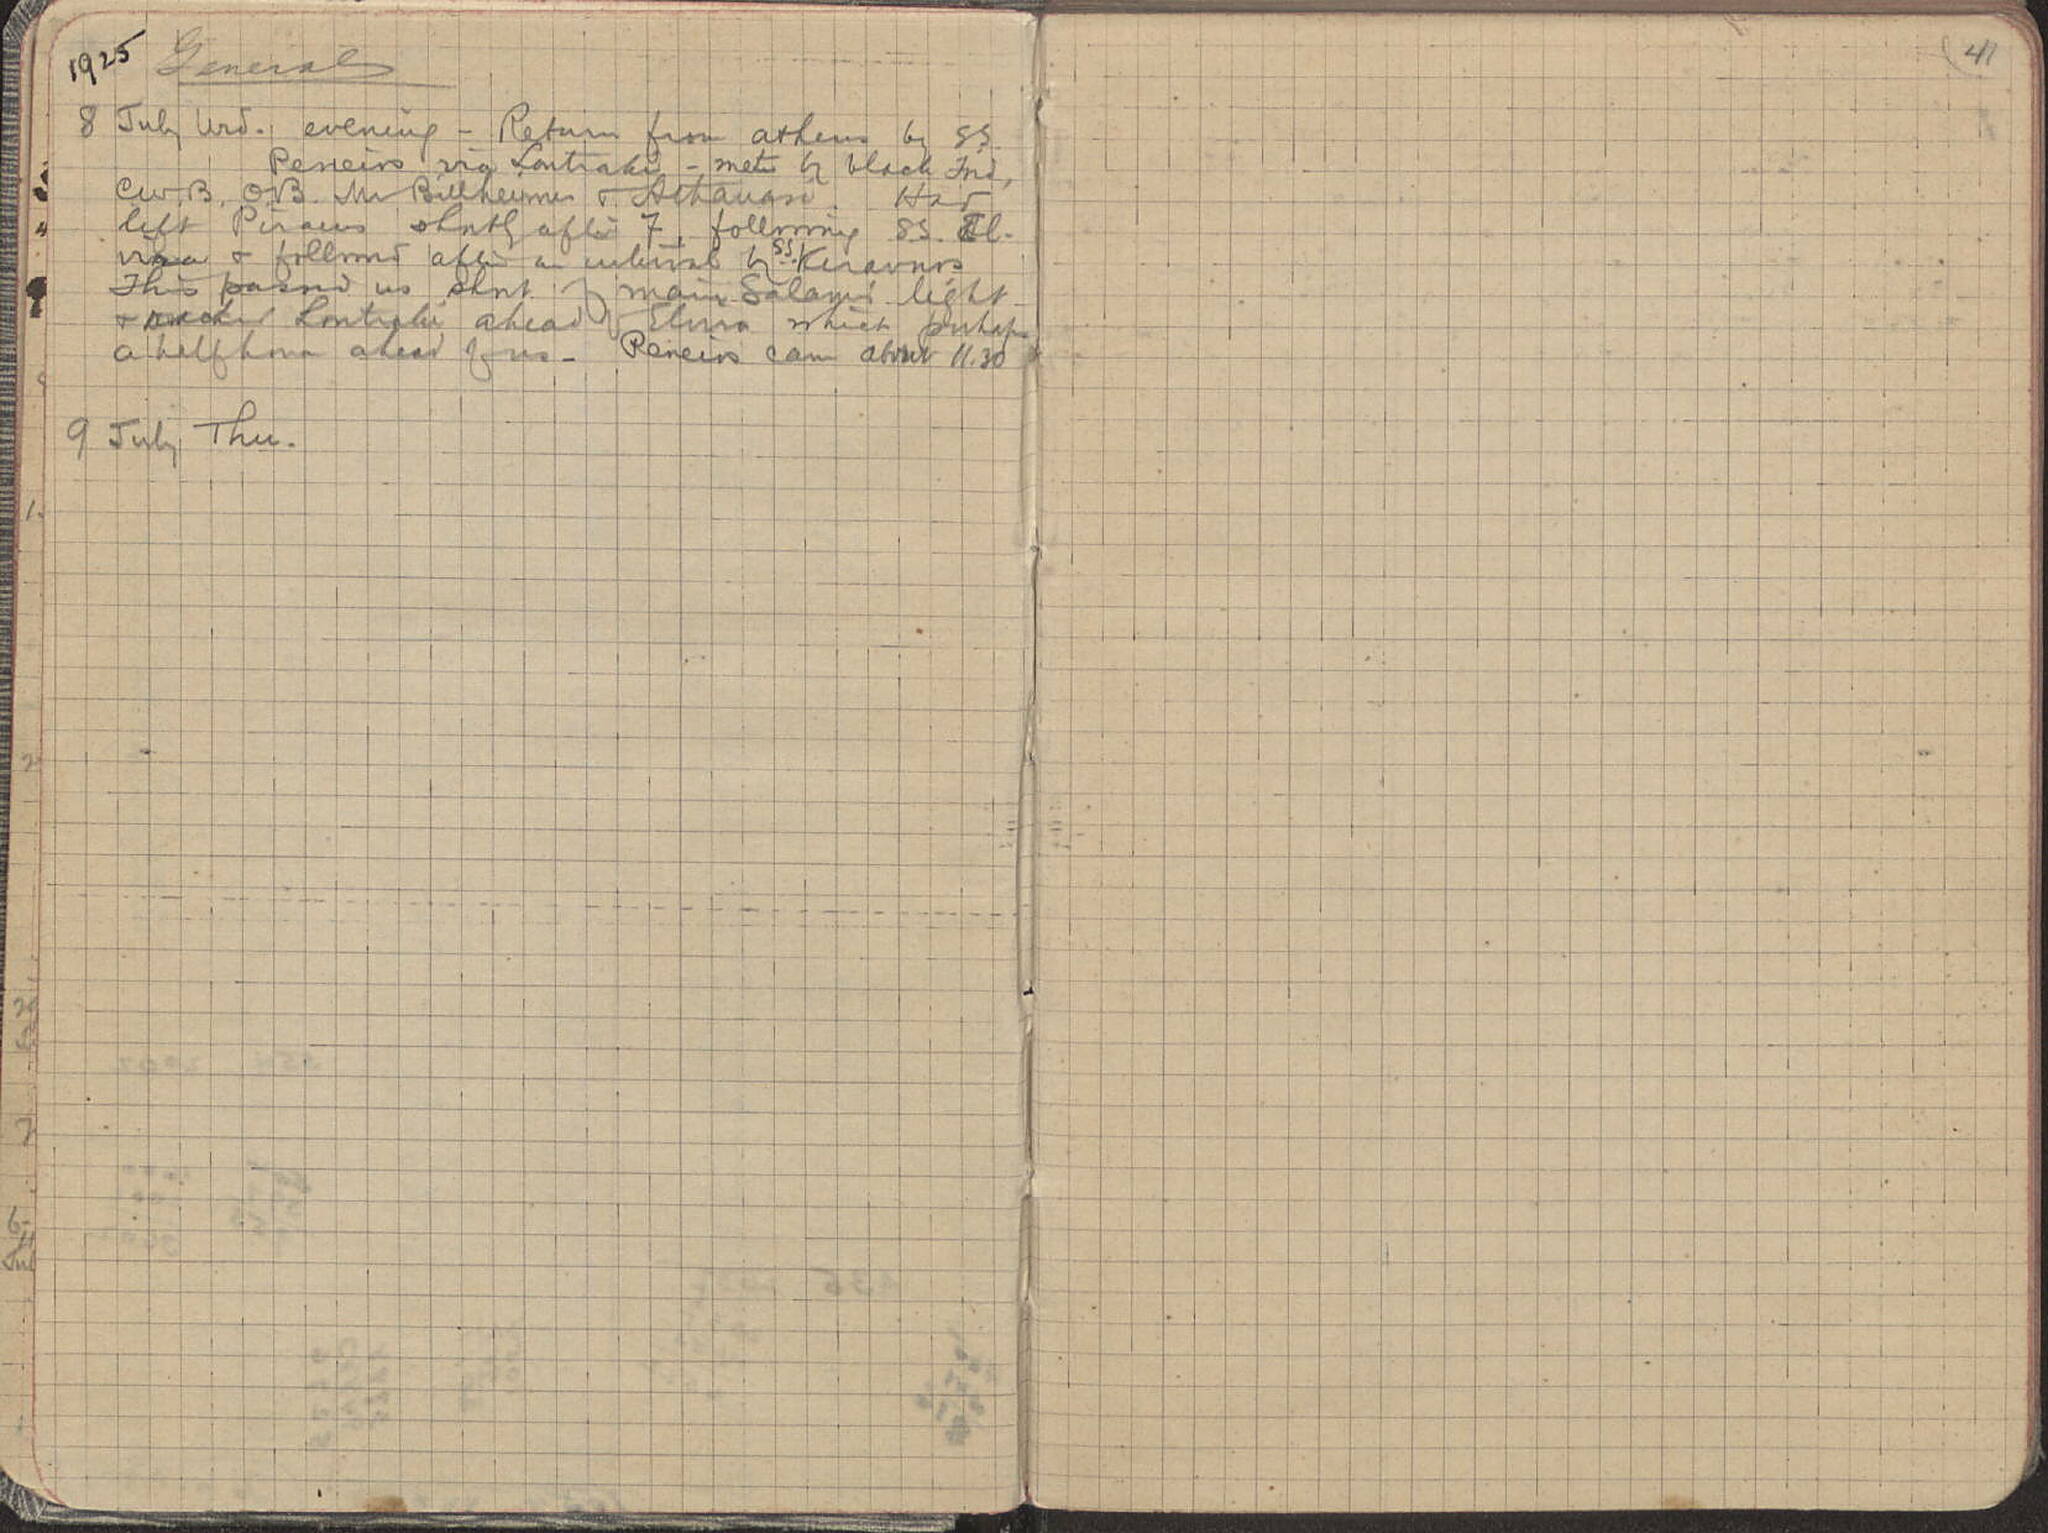 1925 General
8 July Wed. evening - Return from Athens by SS.
Peneios via Loutraki - met by black Ford,
C.W.B. O.B. Mr Billheimer & Athanasi. Had
left Piraeus shortly after 7, following SS. El-
vira & followed after an interval by SS. Keravnos
This passed us short of main Salamis light
& reached Loutraki ahead of Elvira which perhaps
a half hour ahead of us - Peneios came about 11.30
9 July Thu.
41